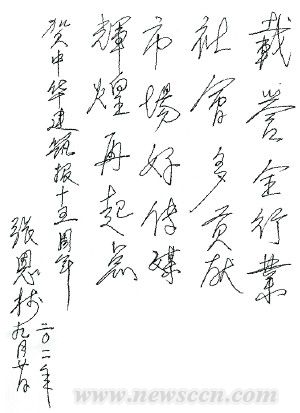 載誉全行業
社會多貢献
市場好传媒
輝煌再起点
贺中华建筑报十五周年
張恩树
二〇一一年
九月廿日
www.newsccn.com